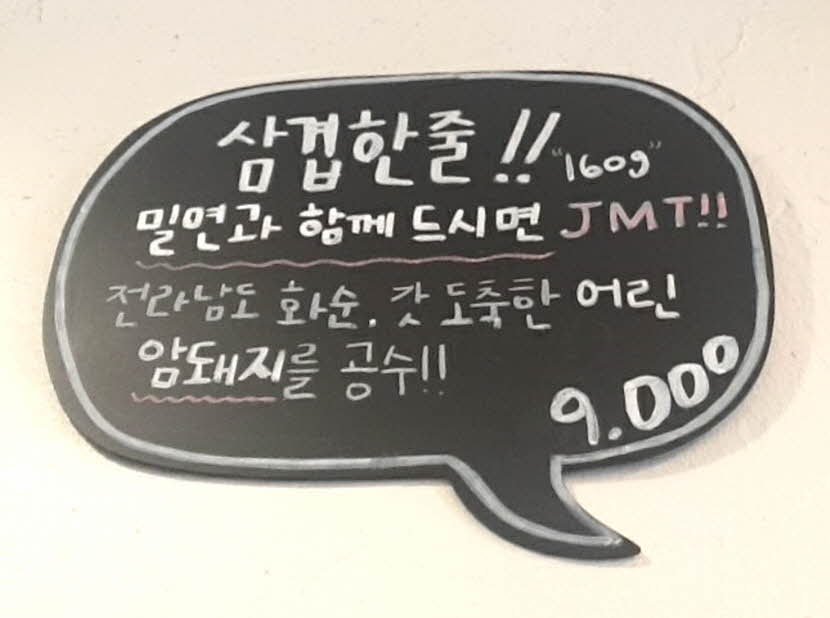 삼겹한줄!! "160g"
밀연과 함께 드시면 JMT!!
전라남도 화순. 갓 도축한 어린
암돼지를 공수!!
9.000